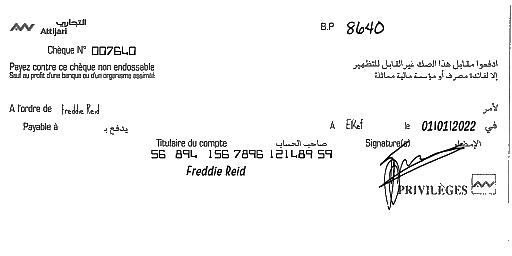 التجاري
Attijari
B.P 8640
Chèque N° 007640
Payez contre ce chèque non endossable
Sauf au profit d'une banque ou d'un organisme assimilé
ادفعوا مقابل هذا الصك غير القابل للتظهير
إلا لفائدة مصرف أو مؤسسة مالية مماثلة
A l'ordre de Freddie Reid
لأمر
Payable à يدفع بـ
A ElKef le 01/01/2022 في
Titulaire du compte صاحب الحساب
Signature(s) الإمضاء
56 894 156 7896 121489 59
Freddie Reid
PRIVILÈGES